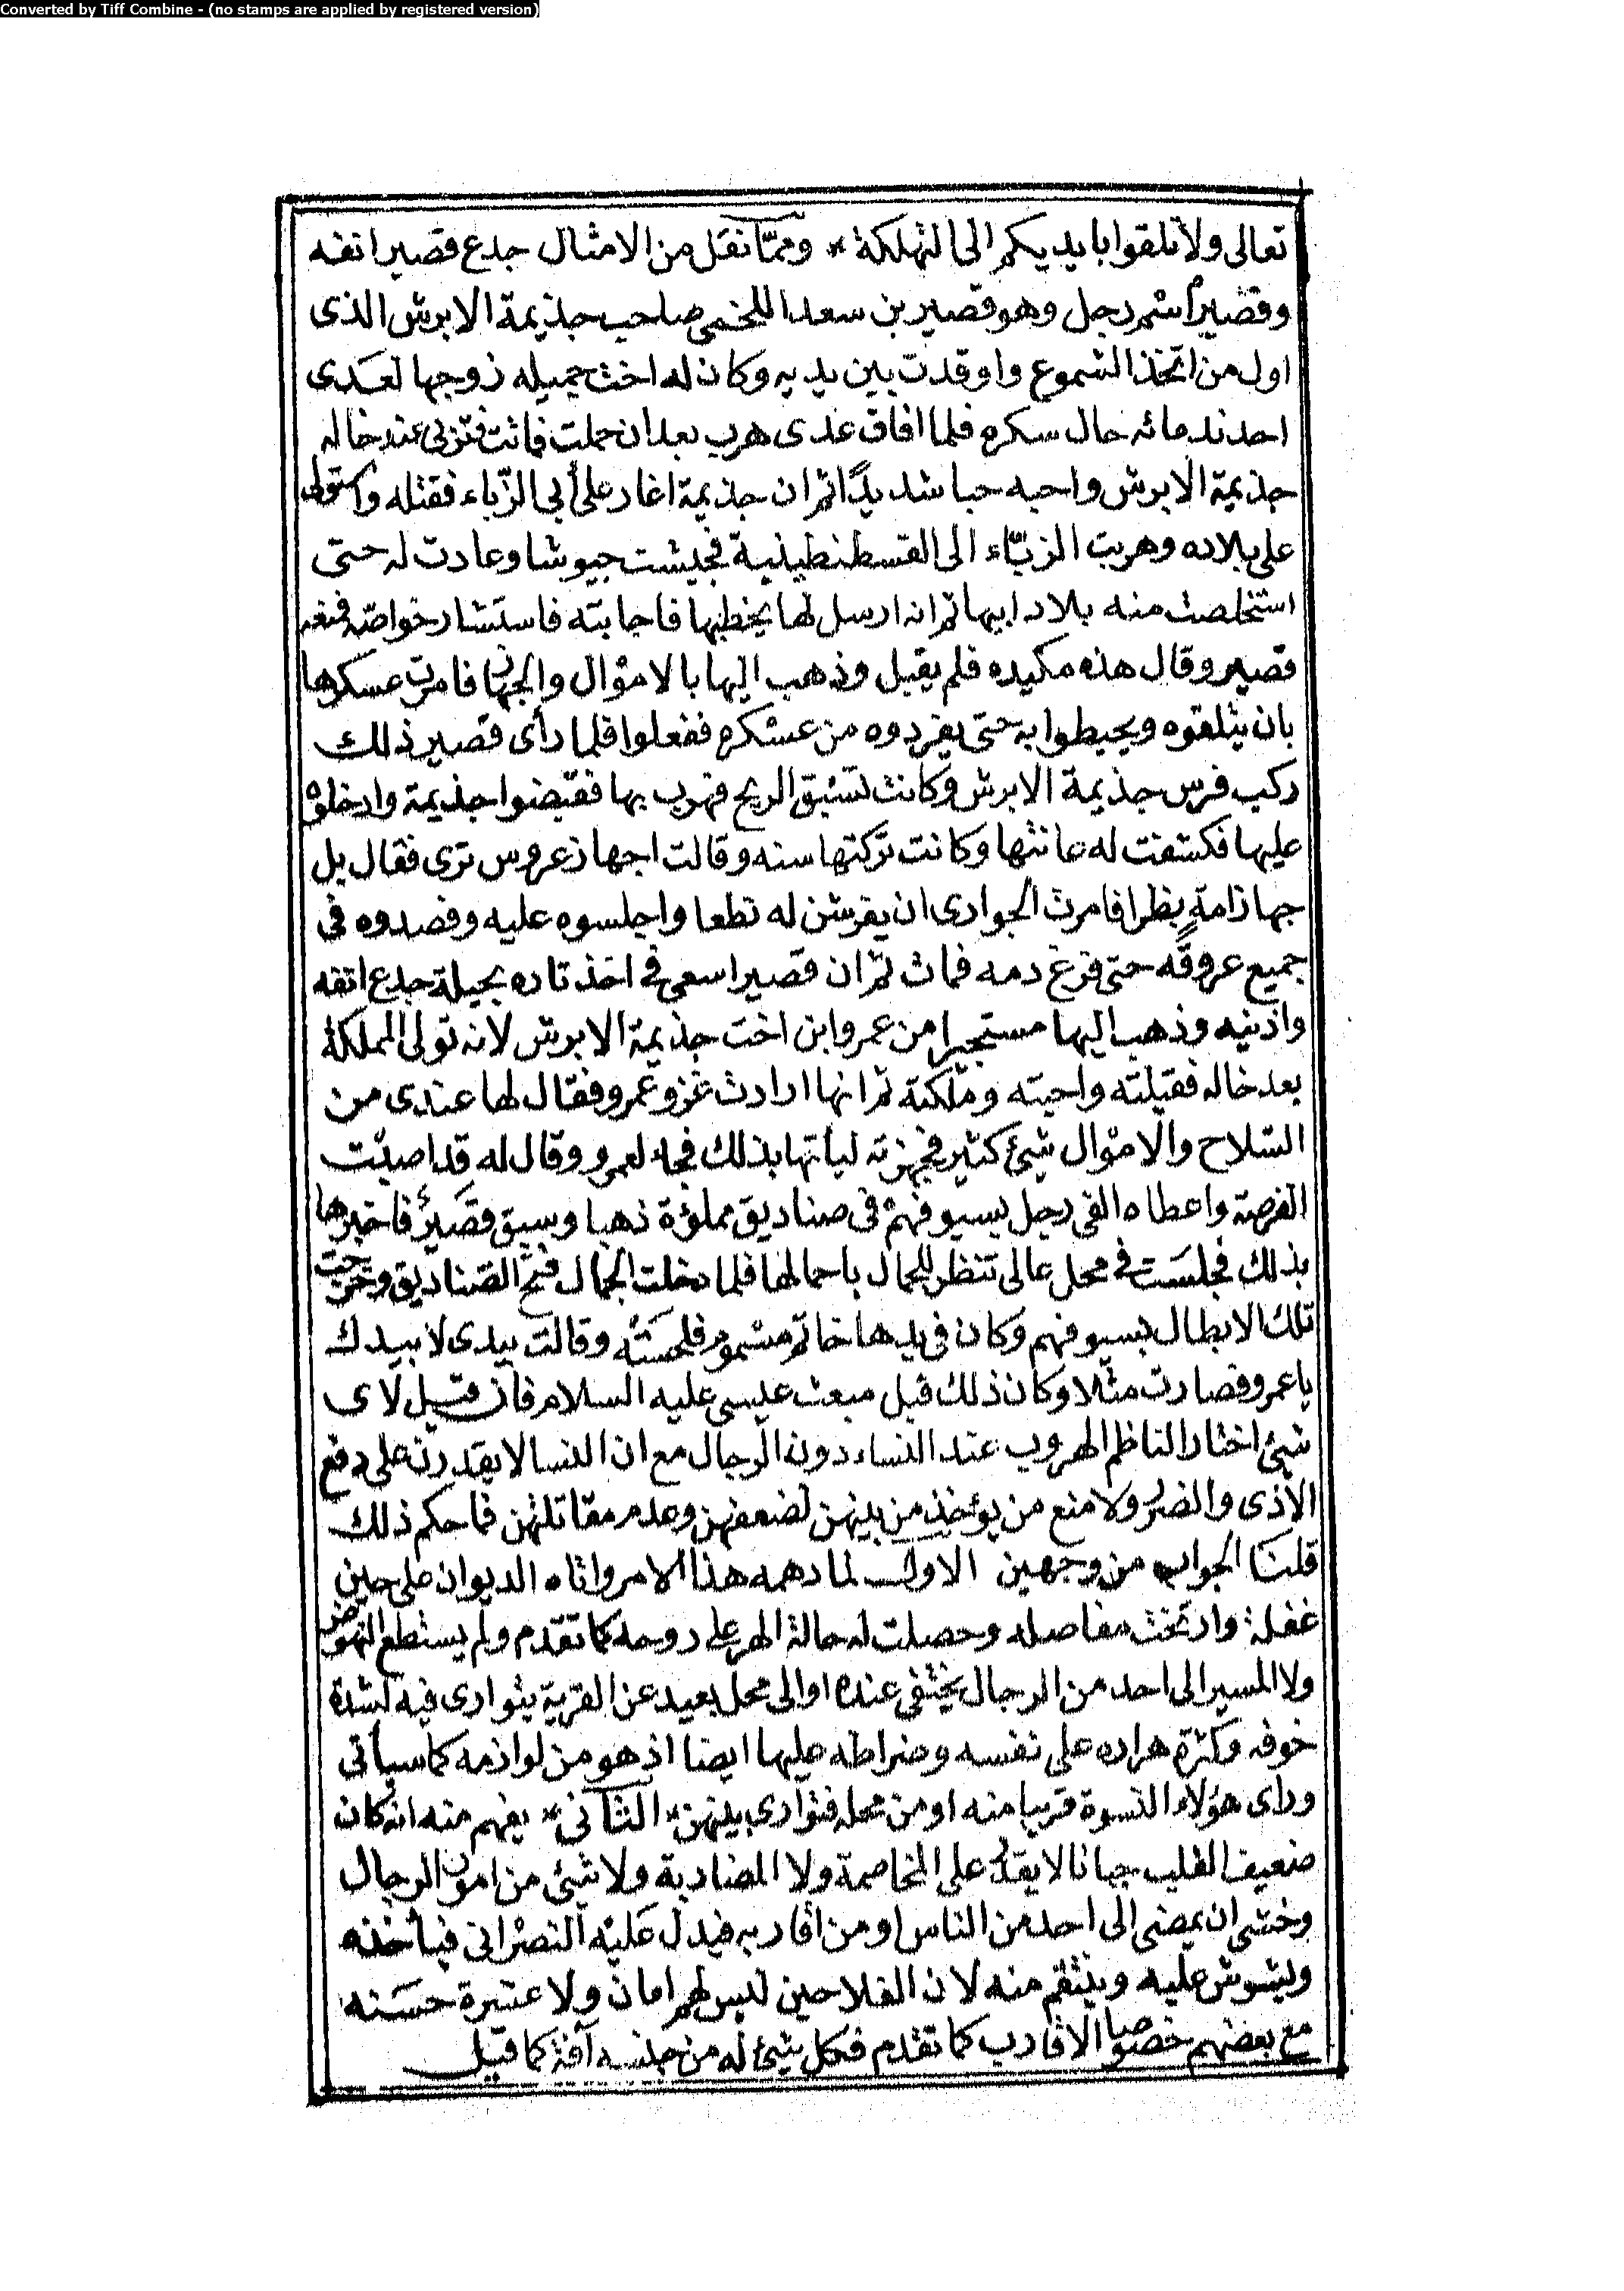 Converted by Tiff Combine - (no stamps are applied by registered version)
تعالى ولا تلقوا بايديكم الى التهلكة * ومما نقل من الامثال جدع قصير انفه
وقصير اسم رجل وهو قصير بن سعد اللخمي صاحب جذيمة الابرش الذى
اول من اتخذ الشموع واوقدت بين يديه وكان له اخت جميله زوجها لعدى
احد ندمائه حال سكره فلما افاق عدى هرب بعد ان حملت فماتت فتربى عند خاله
جذيمة الابرش واحبه حبا شديدًا ثم ان جذيمة اغار على أبى الزّباء فقتله واستولى
على بلاده وهربت الزبّاء الى القسطنطينية فجيشت جيوشا وعادت له حتى
استخلصت منه بلاد ابيها ثم انه ارسل لها يخطبها فاجابته فاستشار خواصّه فمنعه
قصير وقال هذه مكيده فلم يقبل وذهب اليها بالاموال والجهاز فامرت عسكرها
بان يتلقوه ويحيطوا به حتى يفردوه من عسكره ففعلوا فلما رأى قصير ذلك
ركب فرس جذيمة الابرش وكانت تسبق الريح فهرب بها فقبضوا جذيمة وادخلوه
عليها فكشفت له عانتها وكانت تركتها سنه وقالت اجهاز عروس ترى فقال بل
جهاز امة بظرا فامرت الجوارى ان يفرشن له نطعا واجلسوه عليه وفصدوه فى
جميع عروقه حتى فرغ دمه فمات ثم ان قصيرا سعى فى اخذ تاره بحيلة جدع انفه
واذنيه وذهب اليها مستجيرا من عمرو ابن اخت جذيمة الابرش لانه تولى المملكة
بعد خاله فقبلته واحبته وملكته ثم انها ارادت غزو عمرو فقال لها عندى من
السّلاح والاموال شئ كثير فجهزته ليأتها بذلك فجاء لعمرو وقال له قد اصبت
الفرصة واعطاه الفى رجل بسيوفهم فى صناديق مملؤة ذهبا وسبق قصير فاخبرها
بذلك فجلست فى محل عالى تنظر للجمال باحمالها فلما دخلت الجمال فتح الصّناديق وخرجت
تلك الابطال بسيوفهم وكان فى يدها خاتم مسموم فلحسته وقالت بيدى لا بيدك
يا عمرو فصارت مثلا وكان ذلك قبل مبعث عيسى عليه السلام فان قيل لاى
شئ اختار الناظم الهروب عند النساء دون الرجال مع ان النسا لا يقدرن على دفع
الاذى والضرر ولا منع من يؤخذ من بينهن لضعفهن وعدم مقاتلتهن فما حكم ذلك
قلنا الجواب من وجهين الاول لما دهمه هذا الامر واتاه الديوان على حين
غفلة وارتخت مفاصله وحصلت له حالة الهر على روحه كما تقدم ولم يستطع النهوض
ولا المسير الى احد من الرجال يختفى عنده او الى محل بعيد عن القرية يتوارى فيه لشدة
خوفه وكثرة هراره على نفسه وضراطه عليها ايضا اذ هو من لوازمه كما سيأتى
وراى هؤلاء النسوة قريبا منه او من محله فتوارى بينهن * الثانى * يفهم منه انه كان
ضعيف القلب جبانا لا يقدر على المخاصمة ولا المضاربة ولا شئ من امور الرجال
وخشى ان يمضى الى احد من الناس او من اقاربه فيدل عليه النصرانى فيأخذه
ويشوش عليه وينتقم منه لان الفلاحين ليس لهم امان ولا عشرة حسنه
مع بعضهم خصوصا الاقارب كما تقدم فكل شئ له من جنسه آفة كما قيل